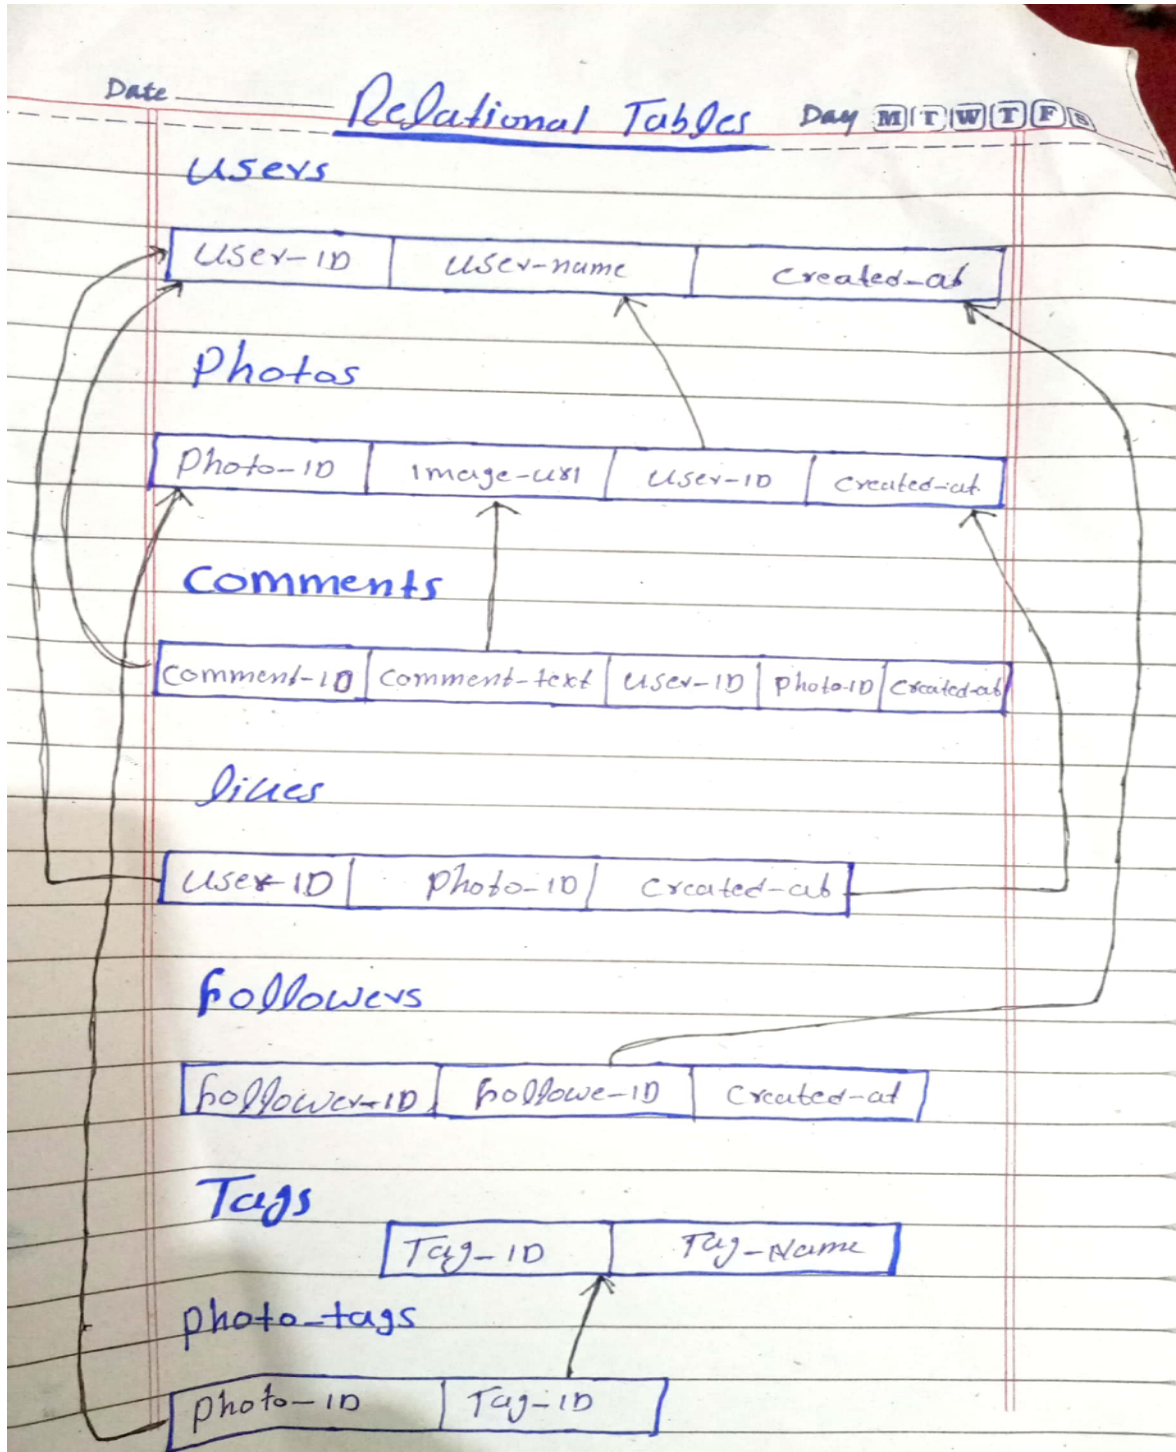 Date Relational Tables Day M T W T F S
users
User-ID User-name Created-at
Photos
Photo-ID Image-url User-ID Created-at
Comments
Comment-ID Comment-text User-ID Photo-ID Created-at
likes
User-ID Photo-ID Created-at
followers
follower-ID followe-ID Created-at
Tags
Tag-ID Tag-Name
photo-tags
Photo-ID Tag-ID